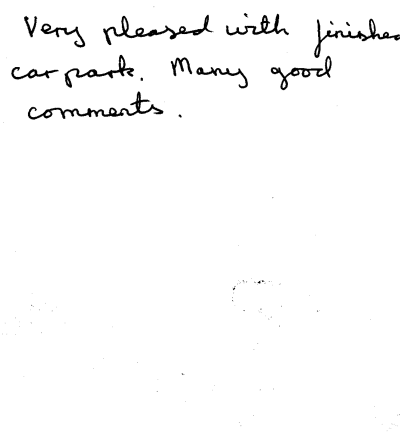 Very pleased with finished
car park. Many good
comments.